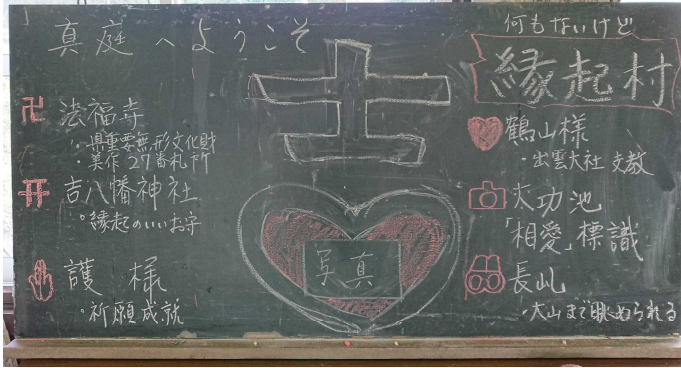 真庭へようこそ
卍 法福寺
・県重要無形文化財
・美作27番札所
吉八幡神社
。縁起のいいお守
護様
。祈願成就
士
写真
何もないけど
縁起村
鶴山様
・出雲大社 支教
大功池
「相愛」標識
長乢
・大山まで眺められる